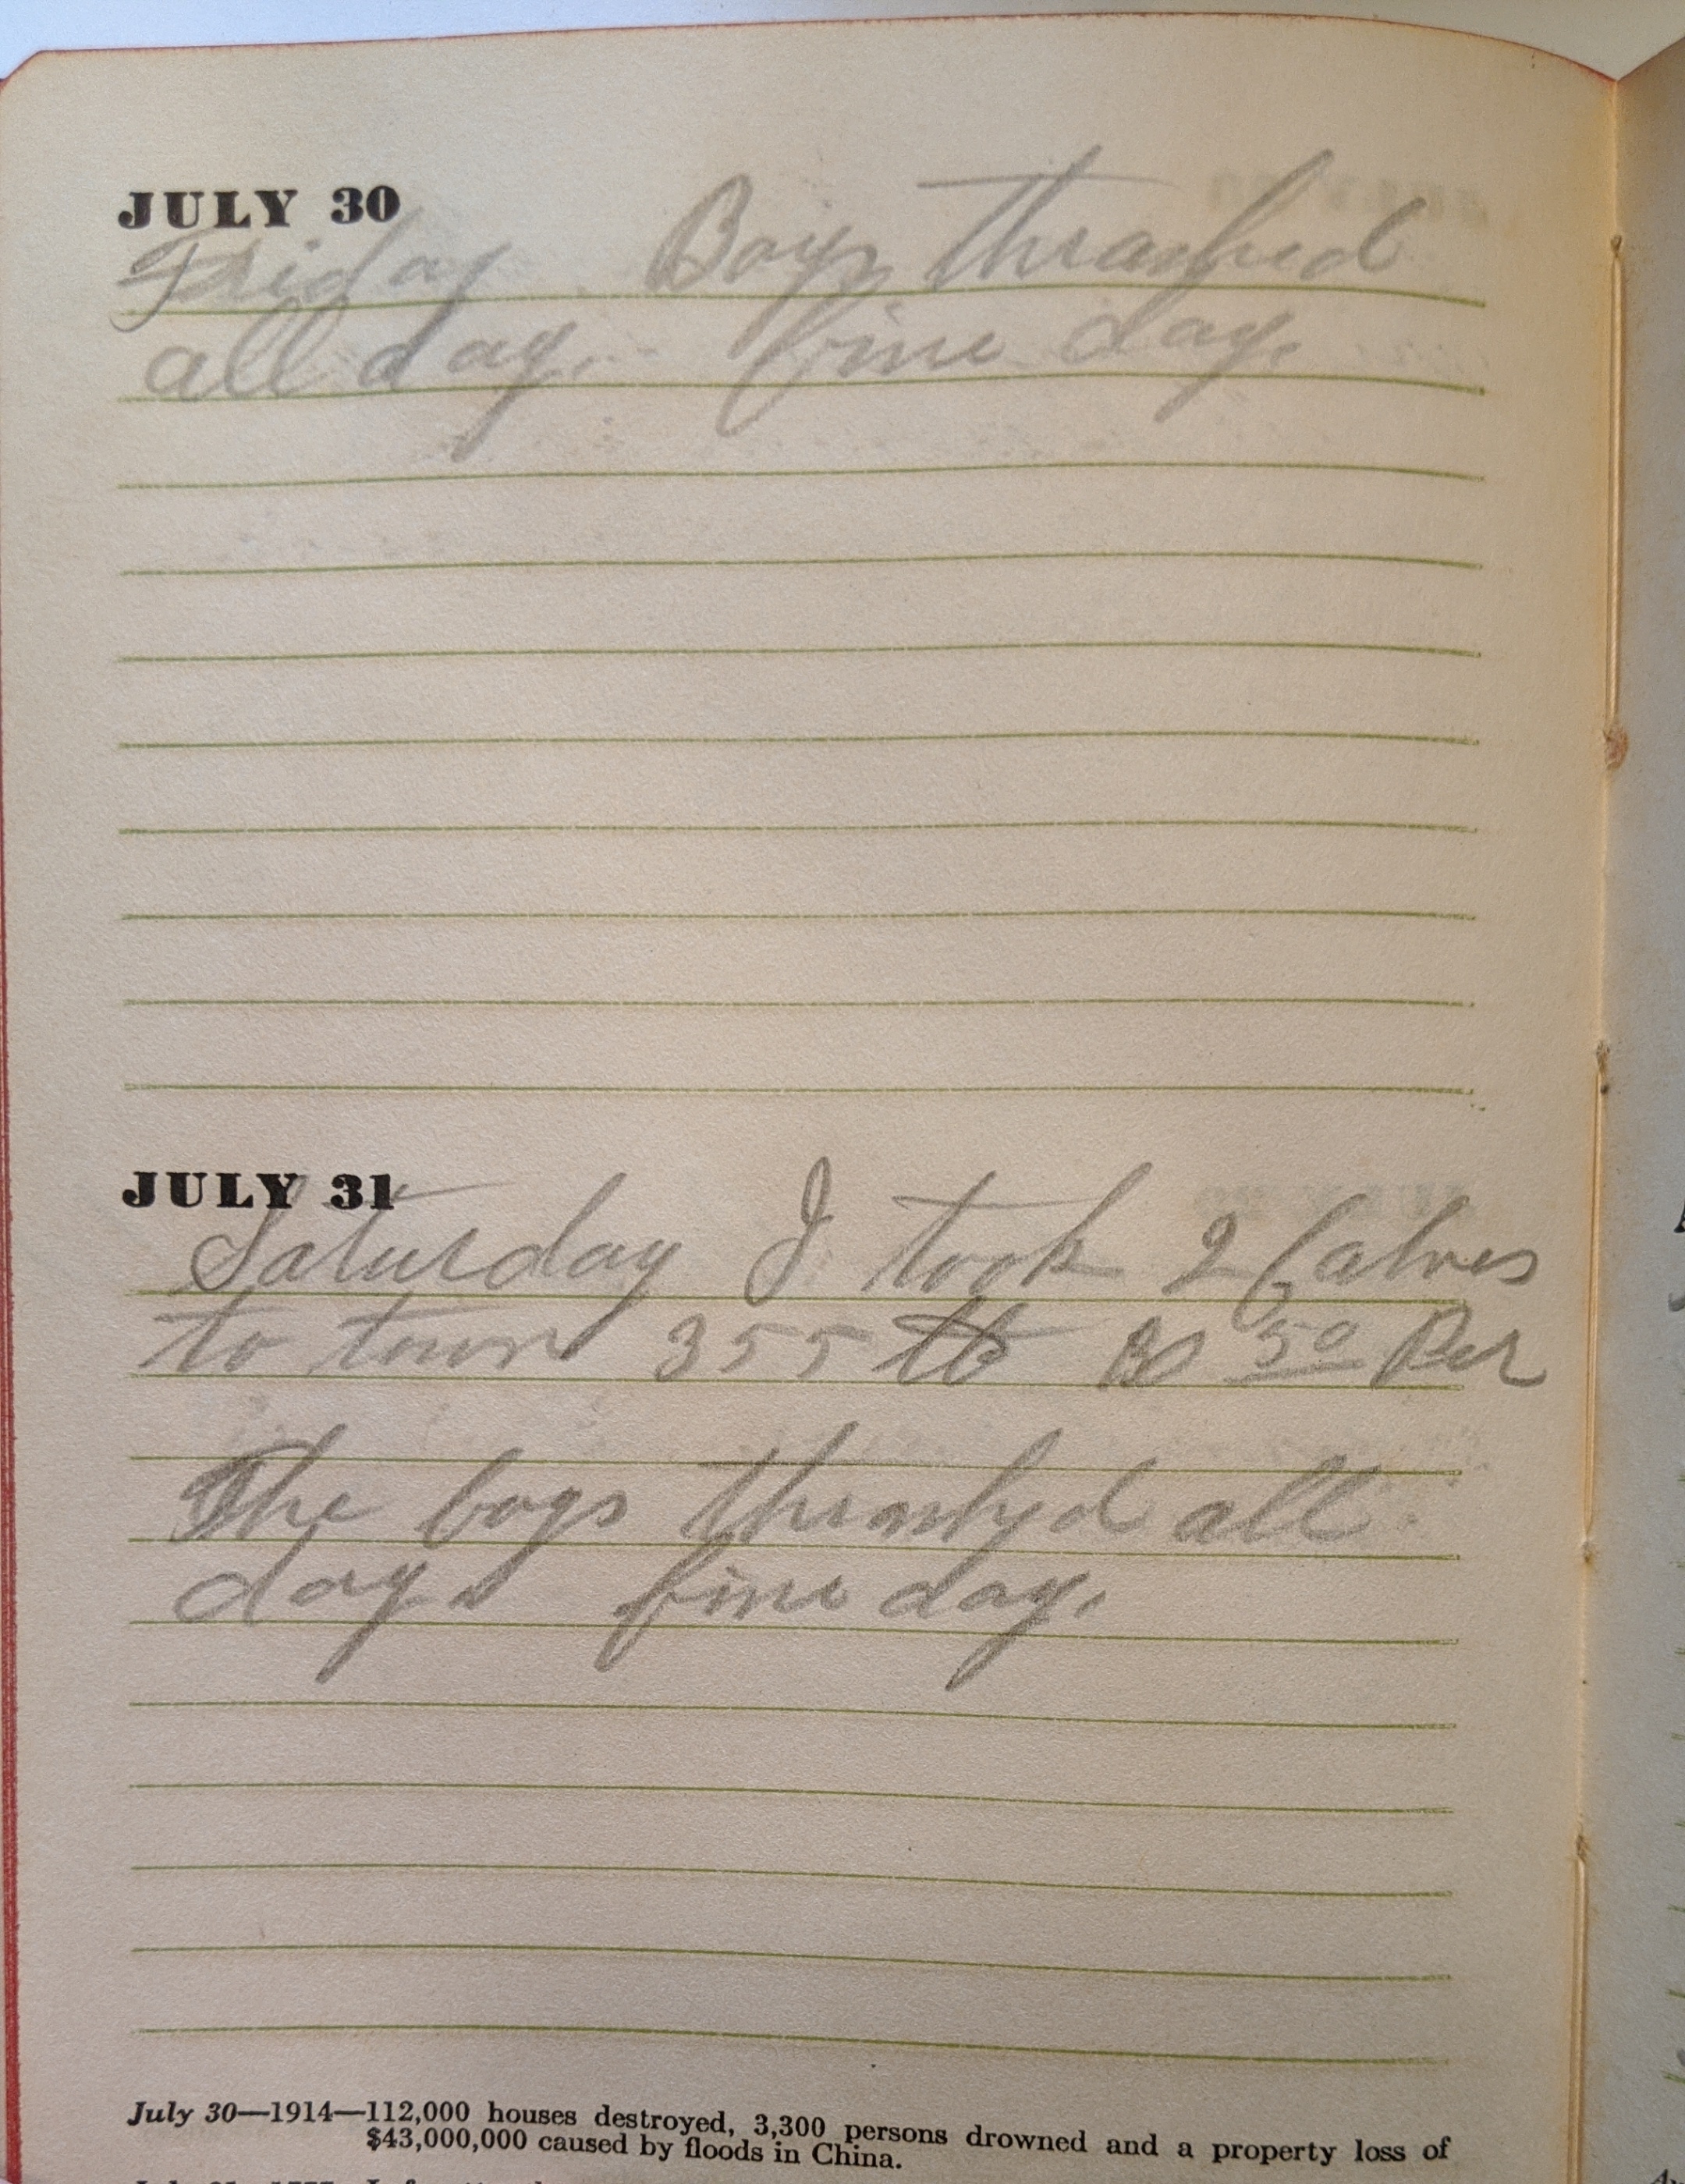 JULY 30
Friday Boys thrashed
all day. fine day.
JULY 31
Saturday I took 2 Calves
to town 355 lb 50 Per
The boys thrashed all
day. fine day.
July 30—1914—112,000 houses destroyed, 3,300 persons drowned and a property loss of
$43,000,000 caused by floods in China.